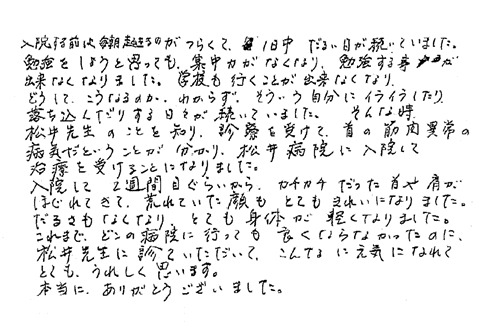 入院する前は、毎朝起きるのがつらくて、1日中 だるい日が続いていました。
勉強をしようと思っても、集中力がなくなり、勉強する事が
出来なくなりました。学校も行くことが出来なくなり、
どうして、こうなるのか、わからず、そういう自分にイライラしたり、
落ち込んだりする日々が続いていました。 そんな時、
松井先生のことを知り、診察を受けて、首の筋肉異常の
病気だということが分かり、松井病院に入院して
治療を受けることになりました。
入院して 2週間目ぐらいから、カチカチだった首や肩が
ほぐれてきて、荒れていた顔もとてもきれいになりました。
だるさもなくなり、とても身体が軽くなりました。
これまで、どこの病院に行っても良くならなかったのに、
松井先生に診ていただいて、こんなに元気になれて
とても、うれしく思います。
本当に、ありがとうございました。